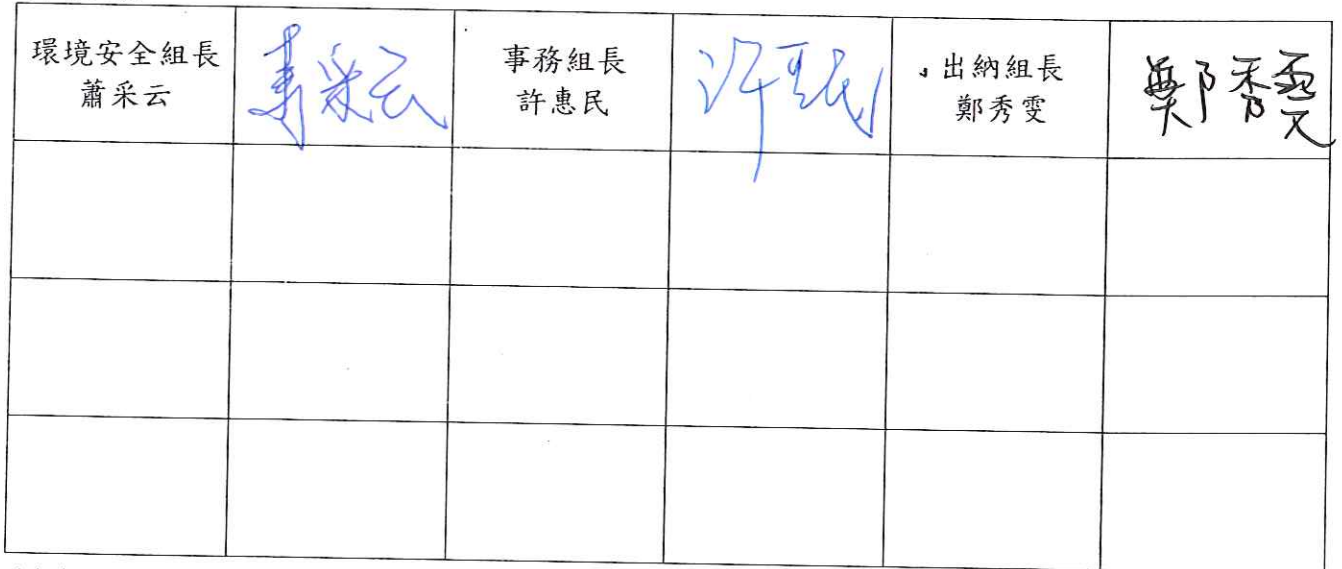 環境安全組長
蕭采云
蕭采云
事務組長
許惠民
許惠民
出納組長
鄭秀雯
鄭秀雯